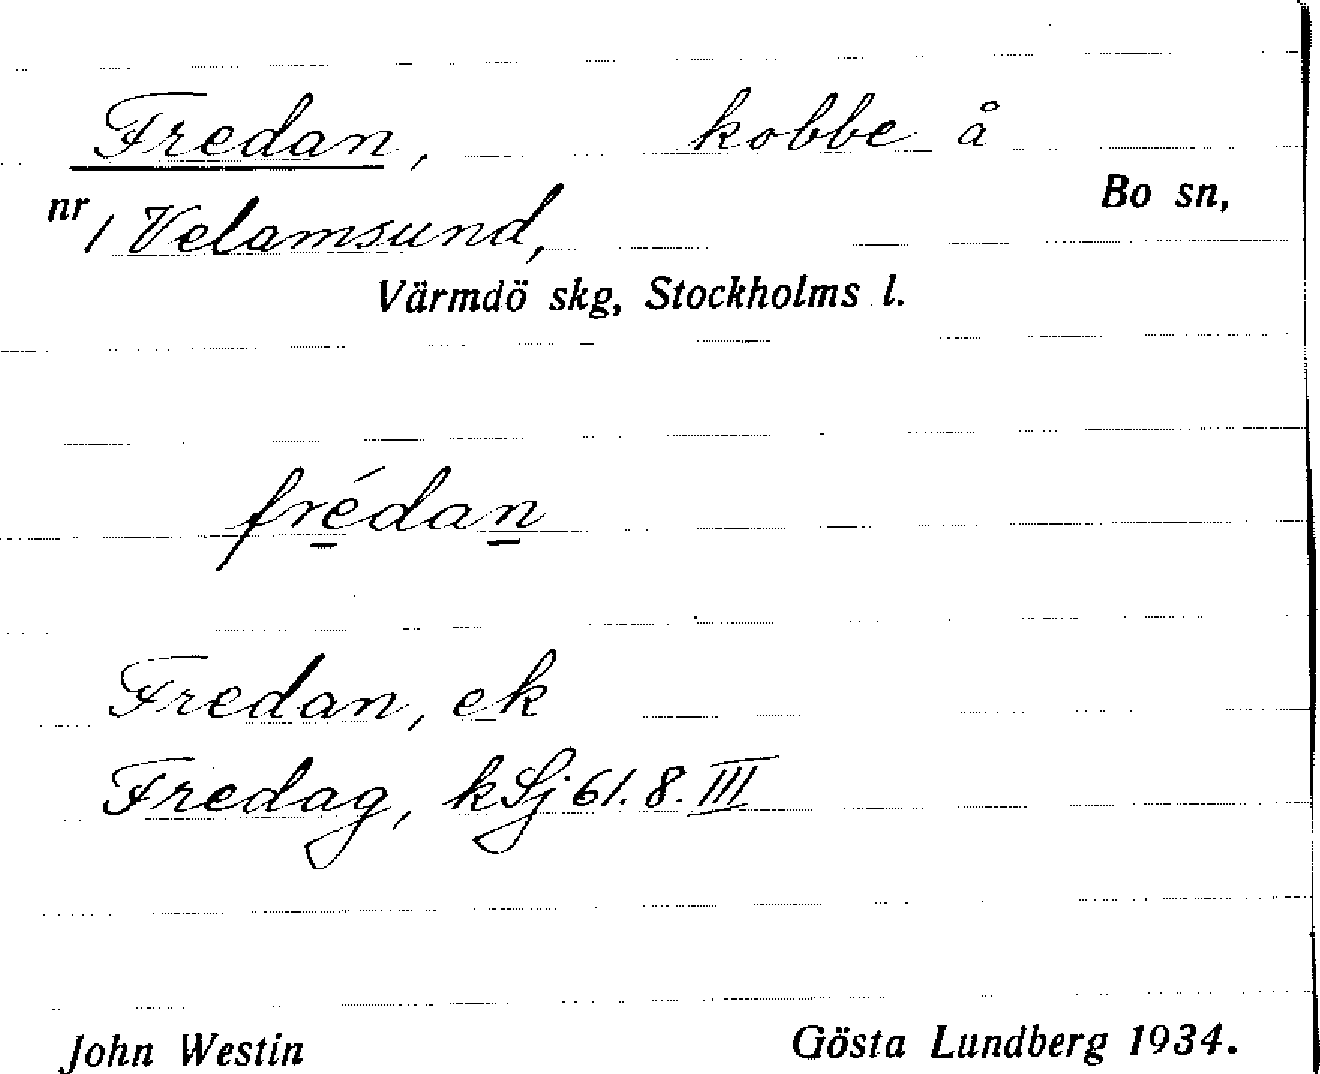 Fredan, kobbe å
nr 1 Velamsund, Bo sn,
Värmdö skg, Stockholms l.
frédan
Fredan, ek
Fredag, kSj 61.8.III
John Westin Gösta Lundberg 1934.